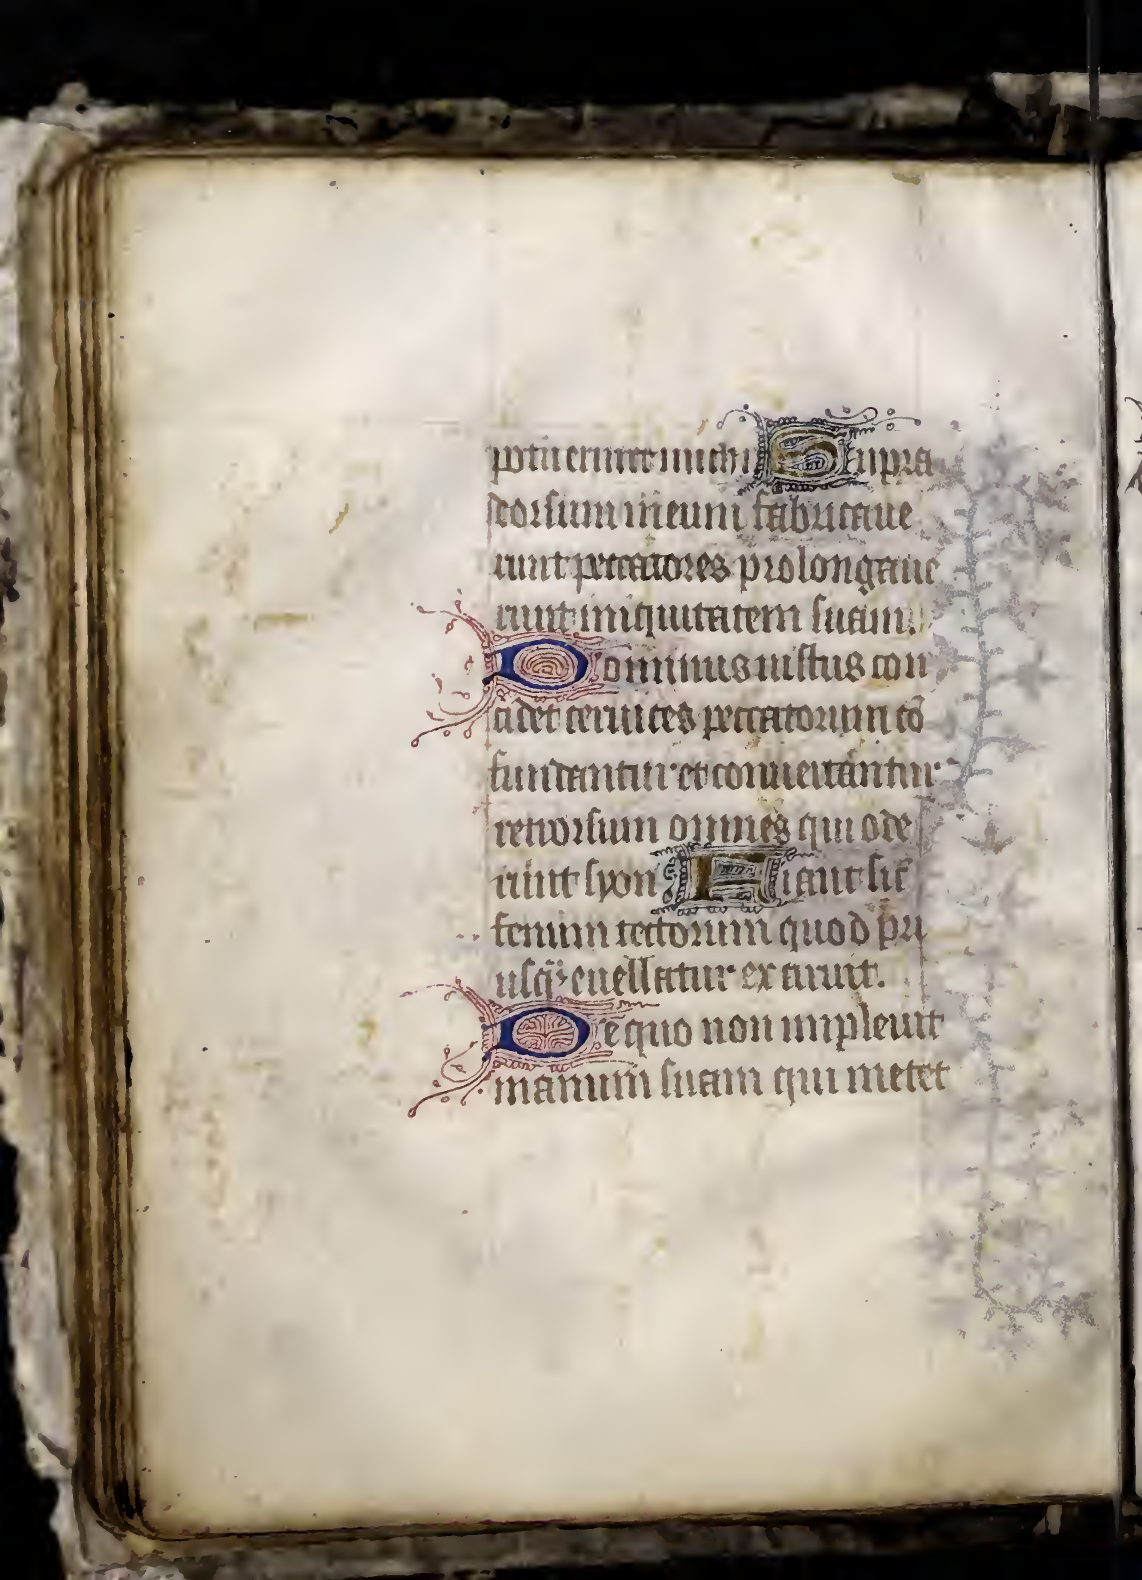 potuerunt michi Supra
dorsum meum fabricaue
runt peccatores prolongaue
runt iniquitatem suam.
Dominus iustus con
cidet ceruices peccatorum cō
fundantur et conuertantur
retrorsum omnes qui ode
runt syon Fiant sic̄
fenum tectorum quod pri
usq̄ʒ euellatur exaruit.
De quo non impleuit
manum suam qui metet